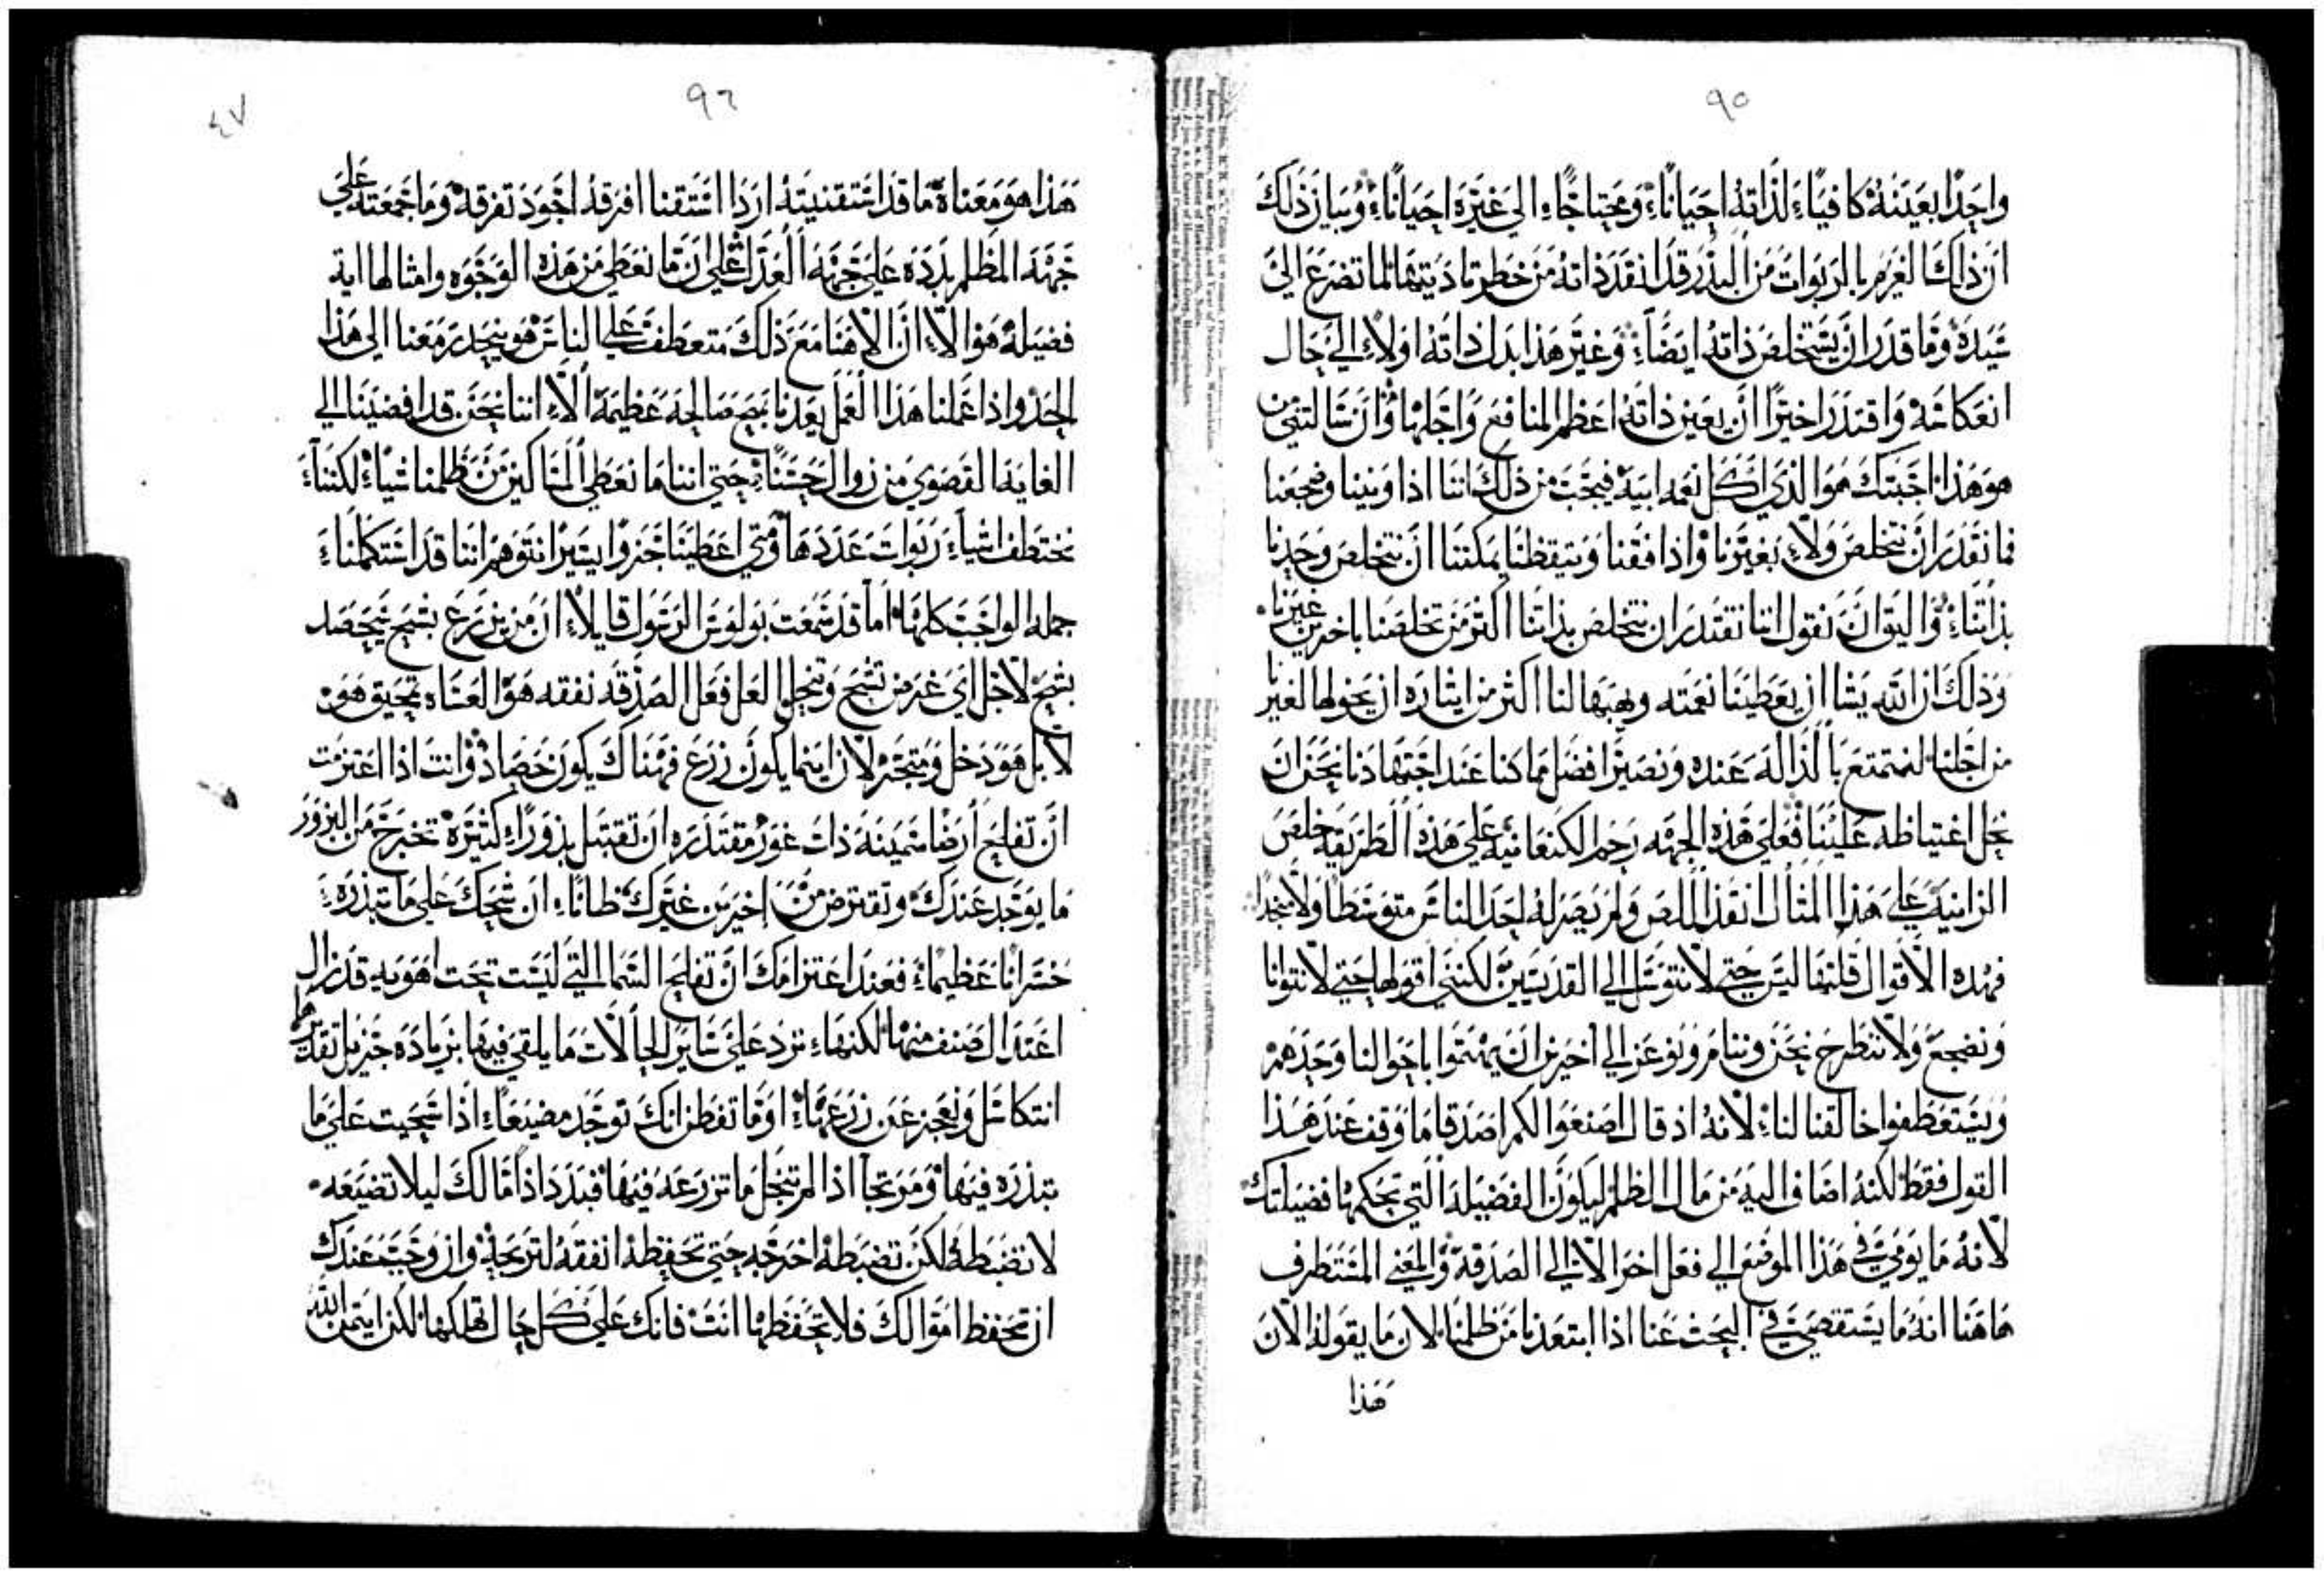 ٩٥
واحدًا بعينه كافيًا لذاته احيانًا ومحتاجًا الى غيره احيانًا وبيان ذلك
ان ذلك الغرم بالربوات من البذر قد انقد ذاته من خطر تاديتها لما تضرع الى
سيده وما قدر ان يستخلص ذاته ايضًا وغير هذا بدل ذاته اولًا الى حال
انعكاسه واقتدر اخيرًا ان يعين ذاته اعظم المنافع واجلها وان سالتني من
هو هذا اجبتك هو الذي اكل نعمه ابيه فيجب من ذلك اننا اذا ونينا وضجعنا
فما نقدر ان نتخلص ولا بغيرنا واذا فقنا وتيقظنا يمكننا ان نتخلص وحدنا
بذاتنا واليق ان نقول اننا نقتدر ان نتخلص بذاتنا اكثر من تخلصنا باخرين غيرنا
وذلك ان الله يشا ان يعطينا نعمته ويهبها لنا اكثر من ايثاره ان يخولها لغيرنا
من اجلنا لنتمتع بالداله عنده ونصير افضل مما كنا عند اجتهادنا نحن ان
نحل اغتياظه علينا فعلى هذه الجهه رحم الكنعانيه على هذه الطريقه خلص
الزانيه على هذا المثال انقذ اللص ولم يصر له احد الناس متوسطًا ولا منجدًا
فهذه الاقوال قلتها ليس حتى لا نتوسل الى القديسين لكنني اقولها حتى لا نتوانا
ونضجع ولا ننطرح نحن وننام ونوعز الى اخرين ان يهتموا باحوالنا وحدهم
ويستعطفوا خالقنا لنا لانه اذ قال اصنعوا لكم اصدقا ما وقف عند هذا
القول فقط لكنه اضاف اليه من مال الظلم ليكون الفضيله التي تحكمها فضيلتك
لانه ما يومي في هذا الموضع الى فعل اخر الا الى الصدقه والمعني المستطرف
هاهنا انه ما يستقصي في البحث عنا اذا ابتعدنا من ظلمنا لان ما يقوله الان
هذا
٩٦
٤٧
هذا هو معناه ما قد استقنيته اردا استقنا افرقه اجود تفرقه وما جمعته على
جهه الظلم بدده على جهه العدل على ان ما نعطي من هذه الوجوه وامثالها اية
فضيله هو الا ان الاهنا مع ذلك متعطف على الناس هو ينحدر معنا الى هذا
الحد واذا عملنا هذا العمل يعدنا بمصالحه عظيمه الا اننا نحن قد افضينا الى
الغايه القصوي من زوال حسنا حتى اننا ما نعطي المساكين من ظلمنا شيا لكننا
نختطف اشيا ربوات عددها ومتى اعطينا جزوًا يسيرًا نتوهم اننا قد استكملنا
جمله الواجب كلها اما قد سمعت بولوس الرسول قايلا ان من يزرع بشح يحصد
بشح لاجل اي غرض تشح وتبخل العل فعل الصدقه نفقه هو العساه تمحيق هو
لا بل هو دخل ومتجر لان اينما يكون زرع فهناك يكون حصاد وانت اذا اعتزمت
ان تفلح ارضا سمينه ذات غور مقتدره ان تقتبل بذورًا كثيره تخرج من البزور
ما يوجد عندك وتقترض من اخرين غيرك ظانًا ان شحك على ما تبذره
خسرانا عظيما فعند اعتزامك ان تفلح السما التي ليست تحت اهويه قد زال
اعتدال صنف منها لكنها ترد على ساير الحالات ما يلقى فيها بزياده جزيل تقديرها
انتكاسل وتعجز عن زرعها اوما تفطن انك توجد مضيعًا اذا شحيت على ما
تبذره فيها ومربحا اذا لم تبخل ما تزرعه فيها فبدد اذا مالك ليلا تضيعه
لا تضبطه لكن تضبطه اخرجه حتى تحفظه انفقه لتربحه وان وجب عندك
ان تحفظ اموالك فلا تحفظها انت فانك على كل حال تهلكها لكن ايتمن الله